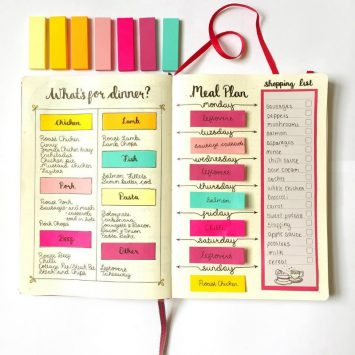 What's for dinner?
Chicken
Roast Chicken
Curry
Enchiladas
Chicken Pie
Mustard Chicken
Fajitas
Pork
Roast Pork
Sausages and mash
- casserole
Pork Chops
Beef
Roast Beef
Chilli
Cottage Pie/Steak Pie
Steak and Chips
Lamb
Roast Lamb
Lamb Chops
Fish
Salmon Fillets
Pasta
Bolognese
Carbonara
Pasta Bake
Other
Leftovers
Takeaway
Meal Plan
monday
Leftovers
tuesday
Sausage casserole
wednesday
Leftovers
thursday
Salmon
friday
Chilli
saturday
Leftovers
sunday
Roast Chicken
Shopping list
Sausages
peppers
mushrooms
salmon
asparagus
mince
sour cream
whole chicken
broccoli
carrots
sweet potato
stuffing
apple sauce
potatoes
milk
cereal